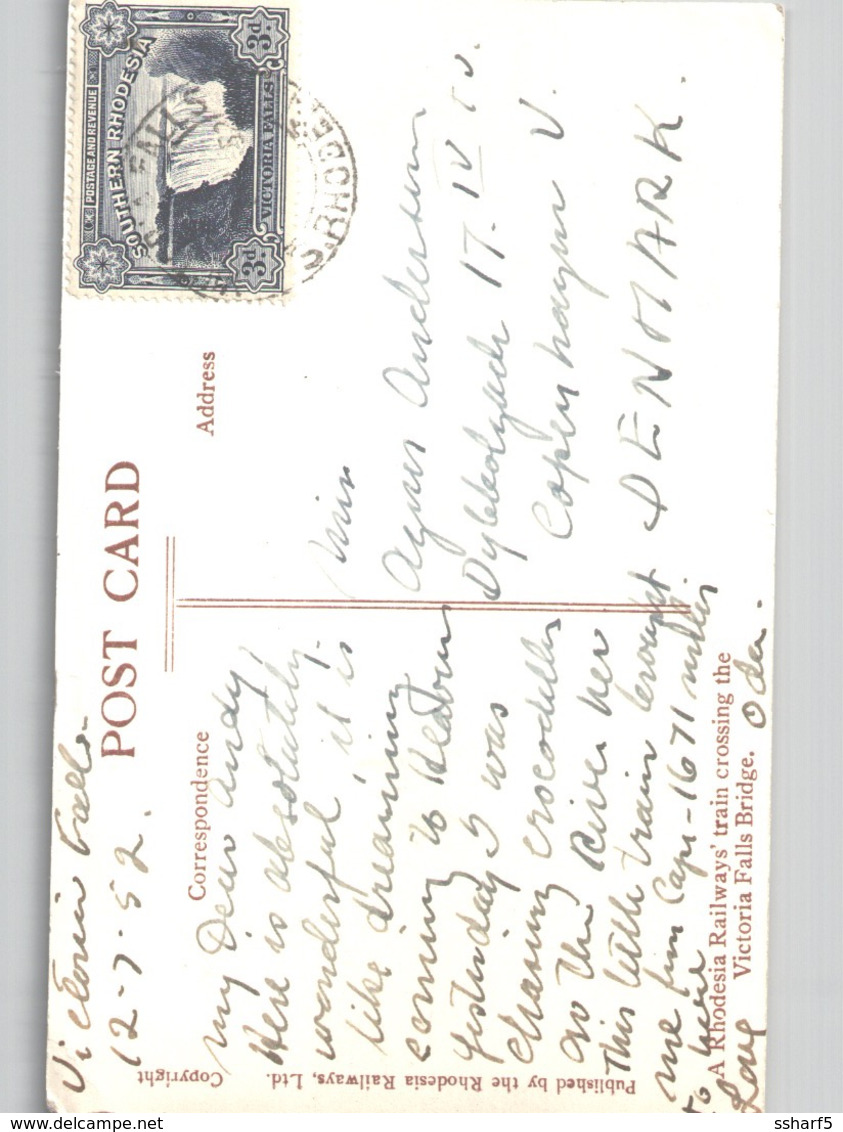 POSTAGE AND REVENUE
SOUTHERN RHODESIA
VICTORIA FALLS
3d. 3d.
FALLS
S. RHODE
POST CARD
Correspondence
Address
Victoria Falls.
12-7-52.
My Dear Andy!
Here is absolutely
wonderful, it is
like dreaming
coming to Heaven
yesterday I was
chasing crocodelles
on the River her
This little train brought
me from Cape-1671 milles
to here
Love Oda.
Miss
Agnes Andersen
Dybbølgade 17. IV tv.
Copenhagen V.
DENMARK.
A Rhodesia Railways' train crossing the
Victoria Falls Bridge.
Published by the Rhodesia Railways, Ltd.
Copyright
ssharf5